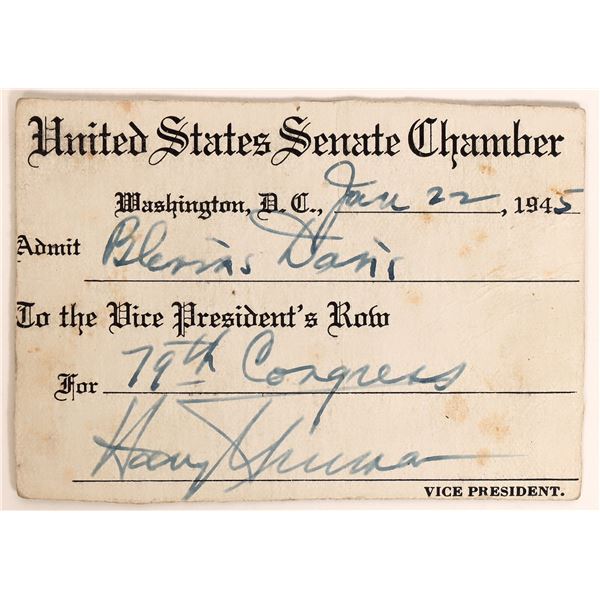 United States Senate Chamber
Washington, D. C., Jan 22, 1945
Admit Blevins Davis
To the Vice President's Row
For 79th Congress
Harry Truman
VICE PRESIDENT.